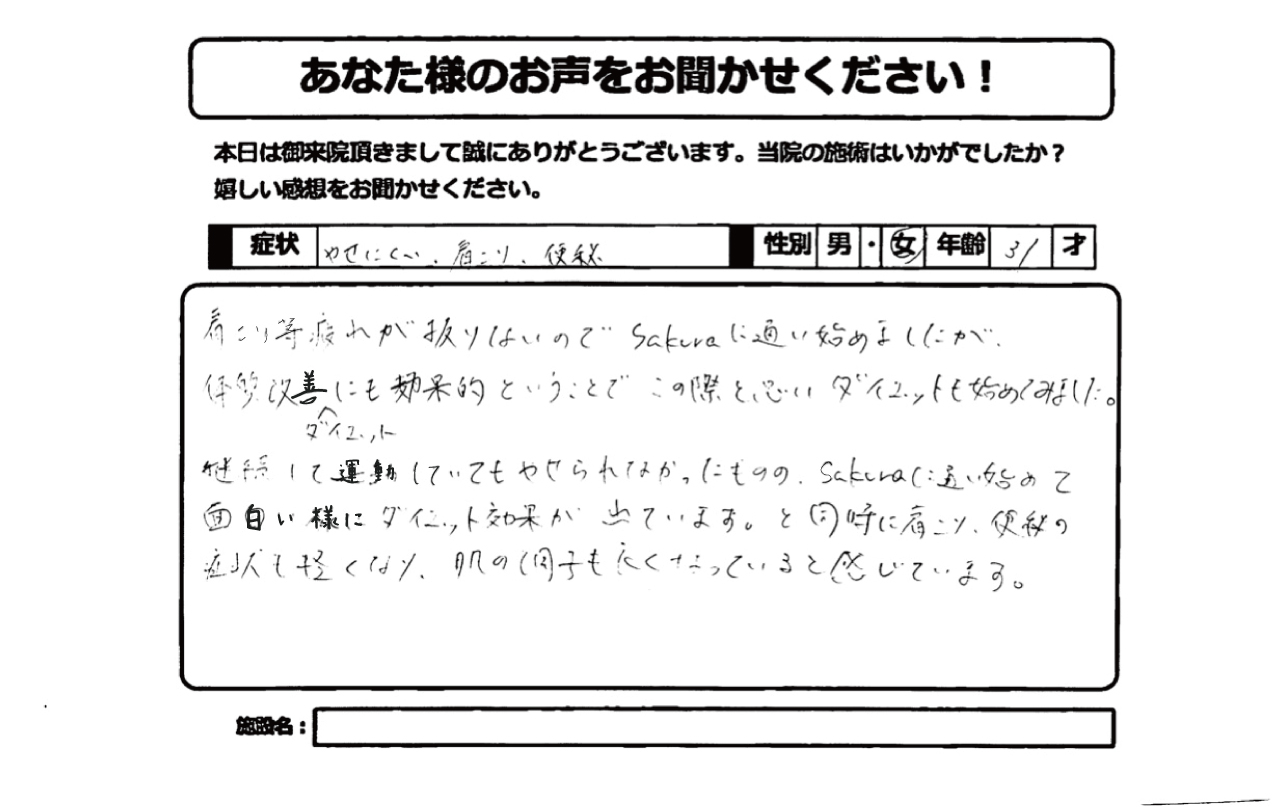 あなた様のお声をお聞かせください！
本日は御来院頂きまして誠にありがとうございます。当院の施術はいかがでしたか？
嬉しい感想をお聞かせください。
症状 やせにくい、肩こり、便秘 性別 男・女 年齢 31 才
肩こり等疲れが抜りないのでSakuraに通い始めましたが、
体質改善にも効果的ということでこの際と思いダイエットも始めてみました。
ダイエット
継続して運動していてもやせられなかったものの、Sakuraに通い始めて
面白い様にダイエット効果が出ています。と同時に肩こり、便秘の
症状も軽くなり、肌の調子も良くなっていると感じています。
施設名：